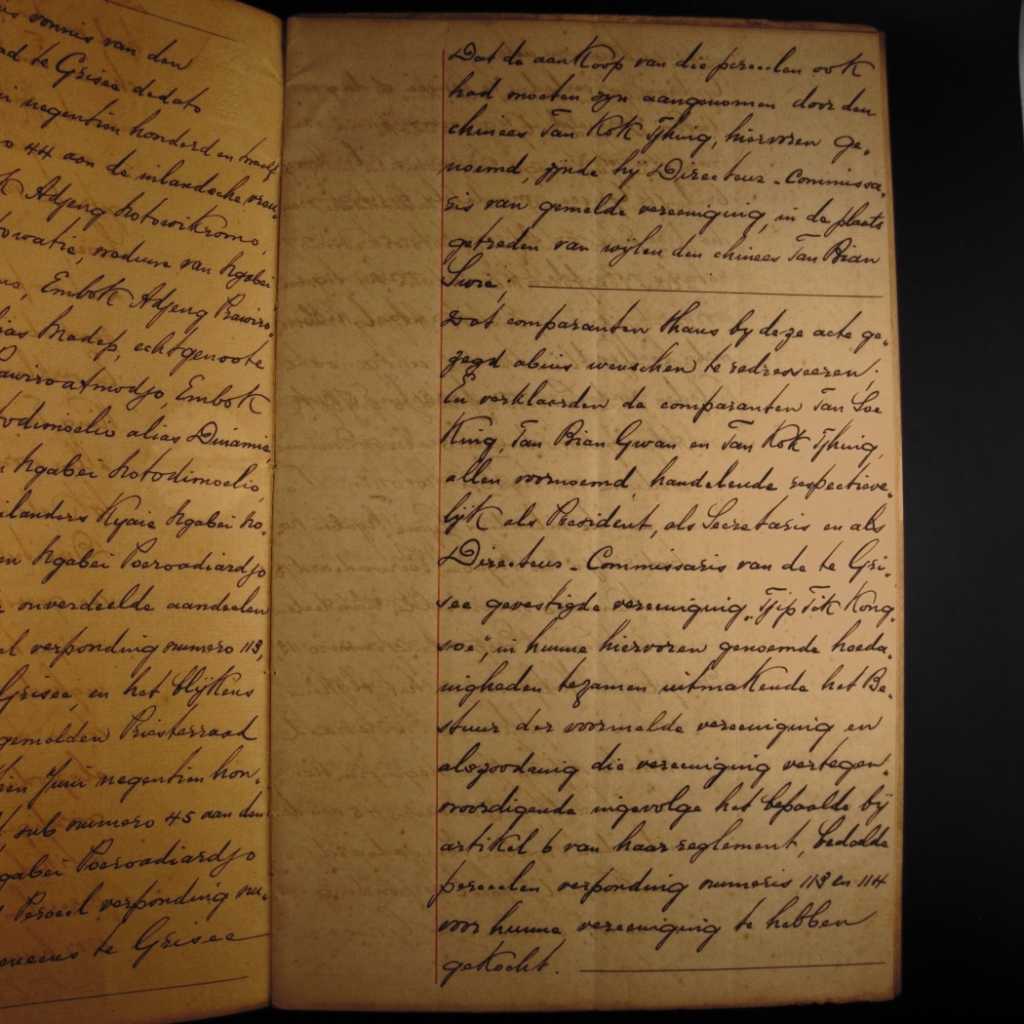 vonnis van den
te Grisee dedato
negentien honderd en twaalf
44 aan de inlandsche vrou-
Adjeng Notowikromo,
weduwe van Ngabei
Embok Adjeng Prawiro-
alias Madep, echtgenoote
Embok
alias Dinamie,
Ngabei Notodimoelio,
Kyaie Ngabei No-
en Ngabei Poeroadiardjo
onverdeelde aandeelen
verponding numero 113,
Grisee, en het blijkens
gemelden Priesterraad
Juni negentien hon-
sub numero 45 aan den
Poeroadiardjo
Perceel verponding nu-
te Grisee
Dat de aankoop van die perceelen ook
had moeten zijn aangenomen door den
chinees Tan Kok Tjhing, hiervoren ge-
noemd, zijnde hij Directeur-Commissa-
ris van gemelde vereeniging, in de plaats
getreden van wijlen den chinees Tan Bian
Swie;
Dat comparanten thans bij deze acte ge-
zegd abuis wenschen te redresseeren;
En verklaarden de comparanten Tan Soe
King, Tan Bian Gwan en Tan Kok Tjhing,
allen voornoemd, handelende respectieve-
lijk als President, als Secretaris en als
Directeur-Commissaris van de te Gri-
see gevestigde vereeniging „Tjip Tik Kong
soe", in hunne hiervoren genoemde hoeda-
nigheden tezamen uitmakende het Be-
stuur der voormelde vereeniging en
alszoodanig die vereeniging vertegen-
woordigende ingevolge het bepaalde bij
artikel 6 van haar reglement, bedoelde
perceelen verponding numeris 113 en 114
voor hunne vereeniging te hebben
gekocht.